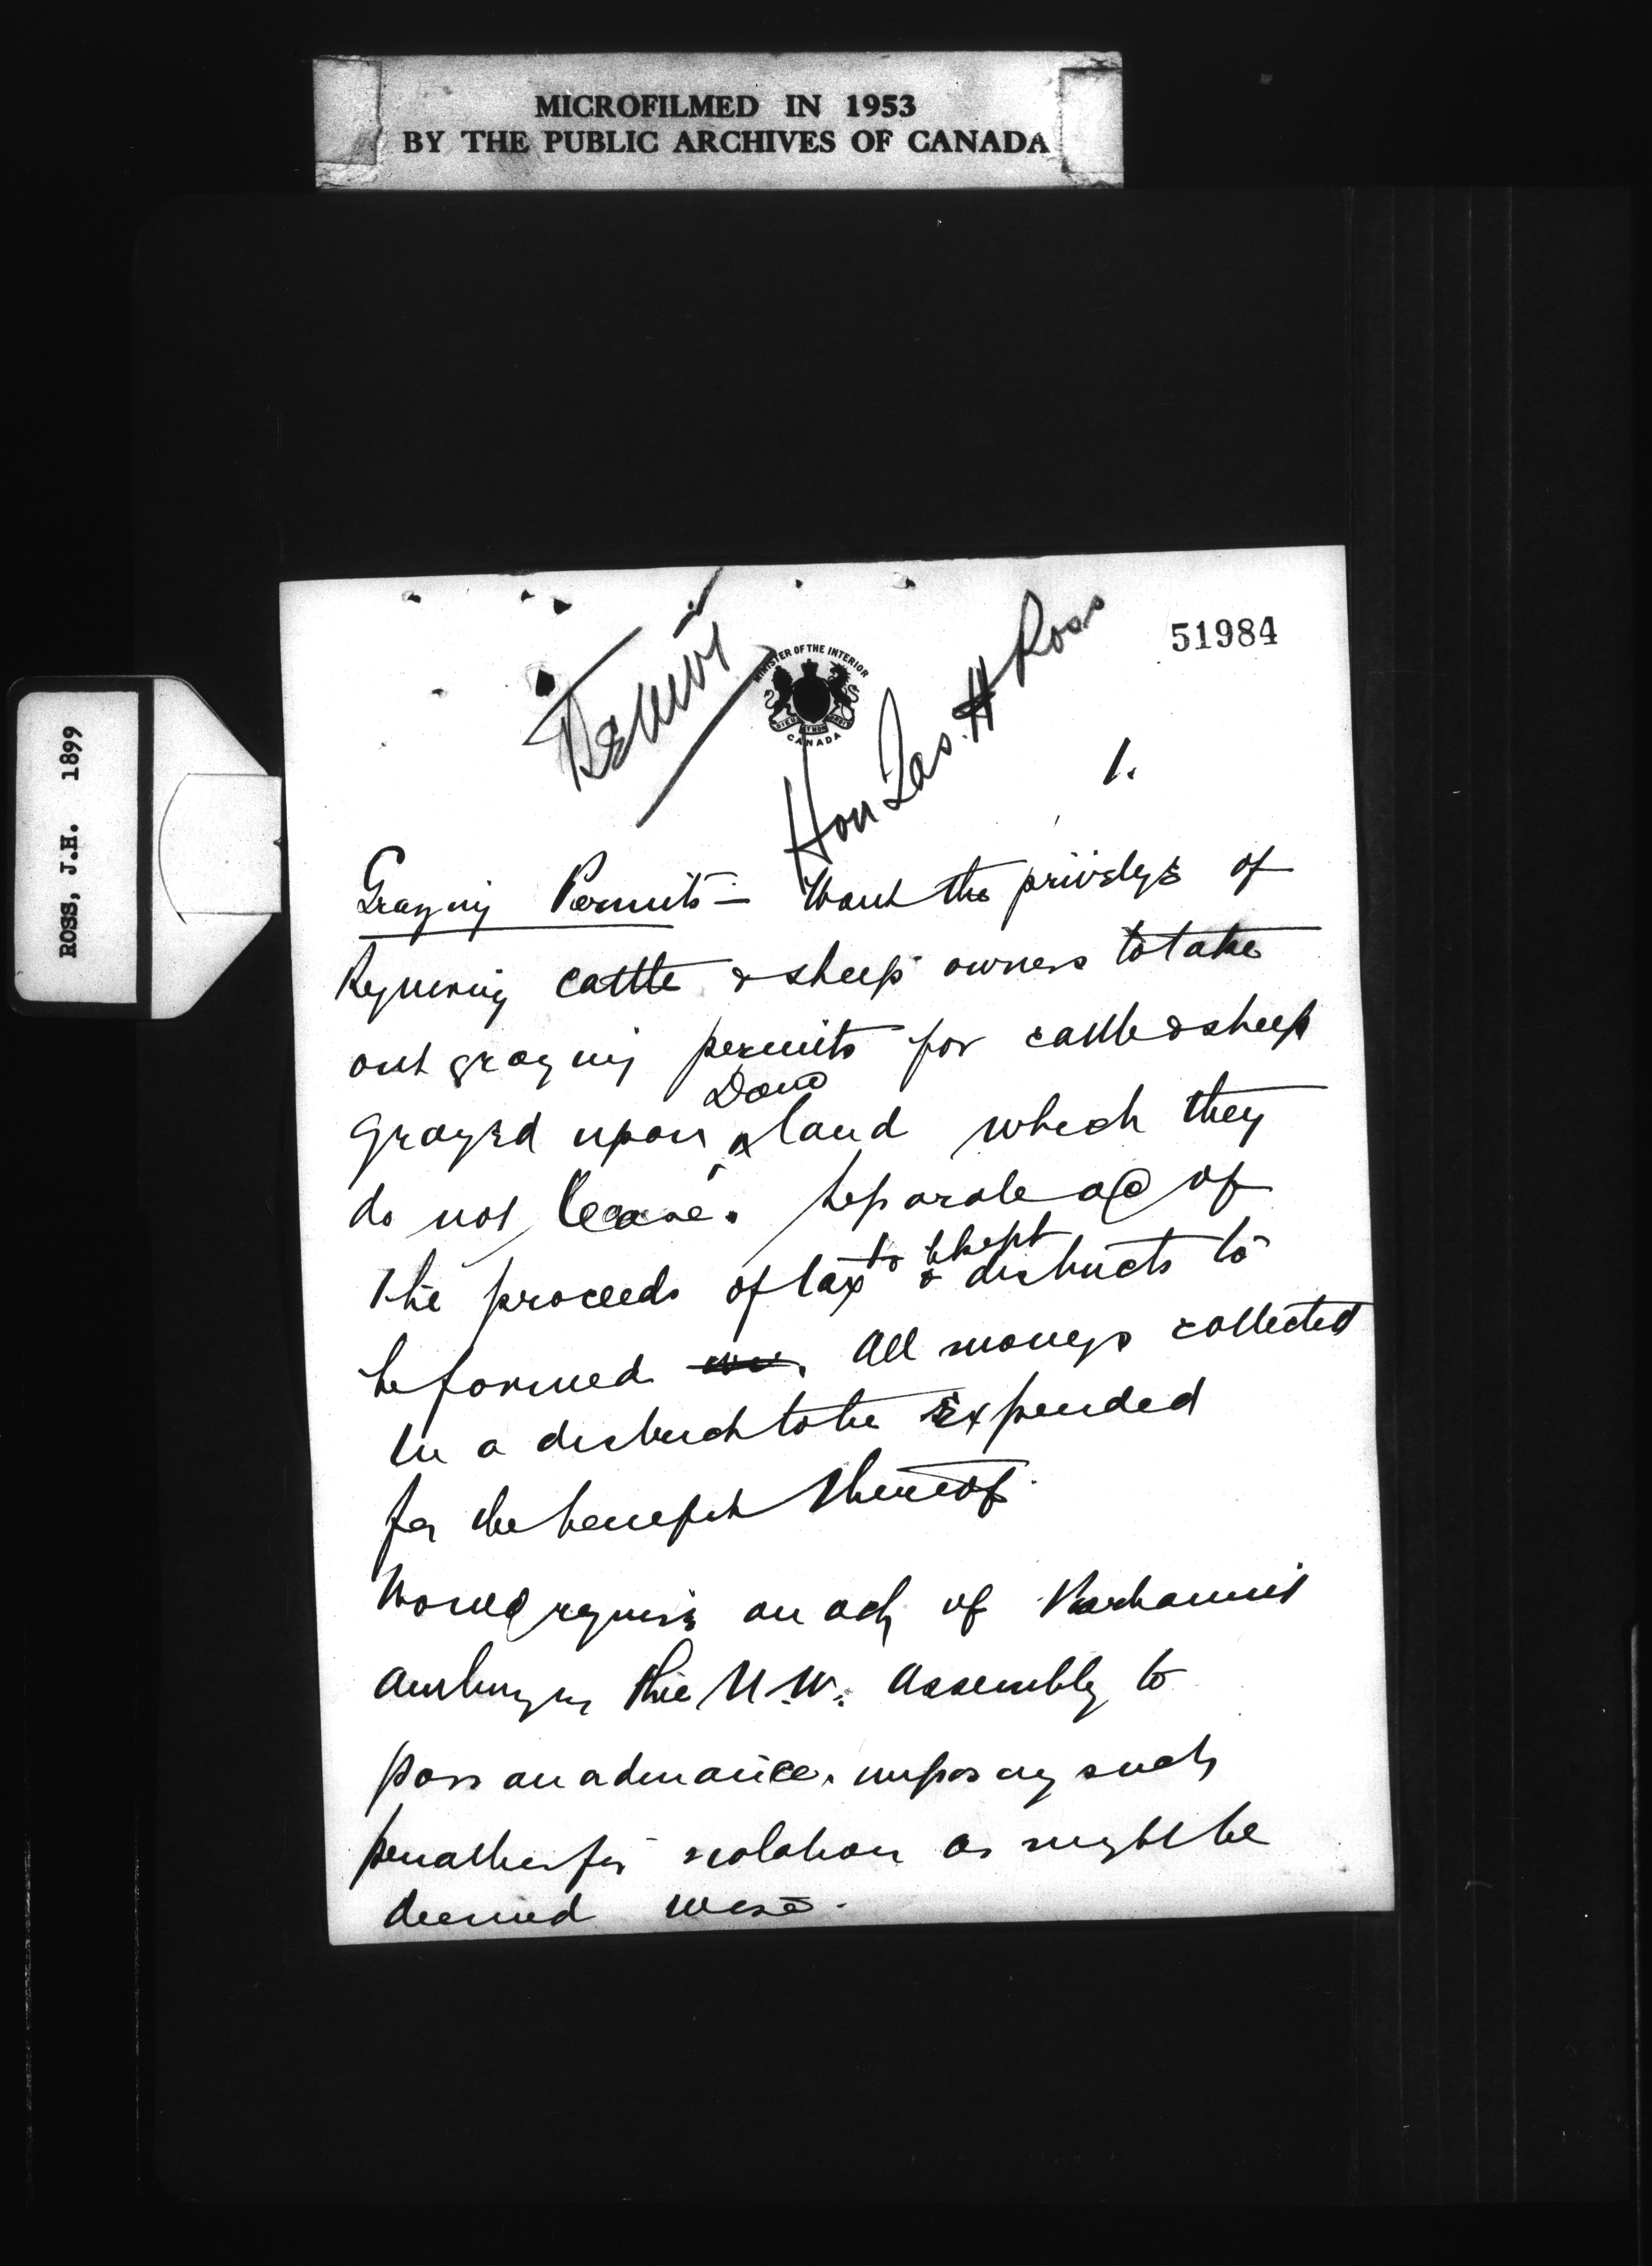 MICROFILMED IN 1953
BY THE PUBLIC ARCHIVES OF CANADA
ROSS, J.H. 1899
51984
MINISTER OF THE INTERIOR
CANADA
Hon Jas. H Ross
1.
Grazing Permits – Want the privilege of
Requiring cattle & sheep owners to take
out grazing permits for cattle & sheep
grazed upon Dom land which they
do not lease. Separate a/c of
the proceeds of tax to be kept & districts to
be formed. All moneys collected
in a district to be expended
for the benefit thereof.
Would require an act of Parliament
authorizing the N.W. Assembly to
pass an ordinance, imposing such
penalties for violation as might be
deemed wise.